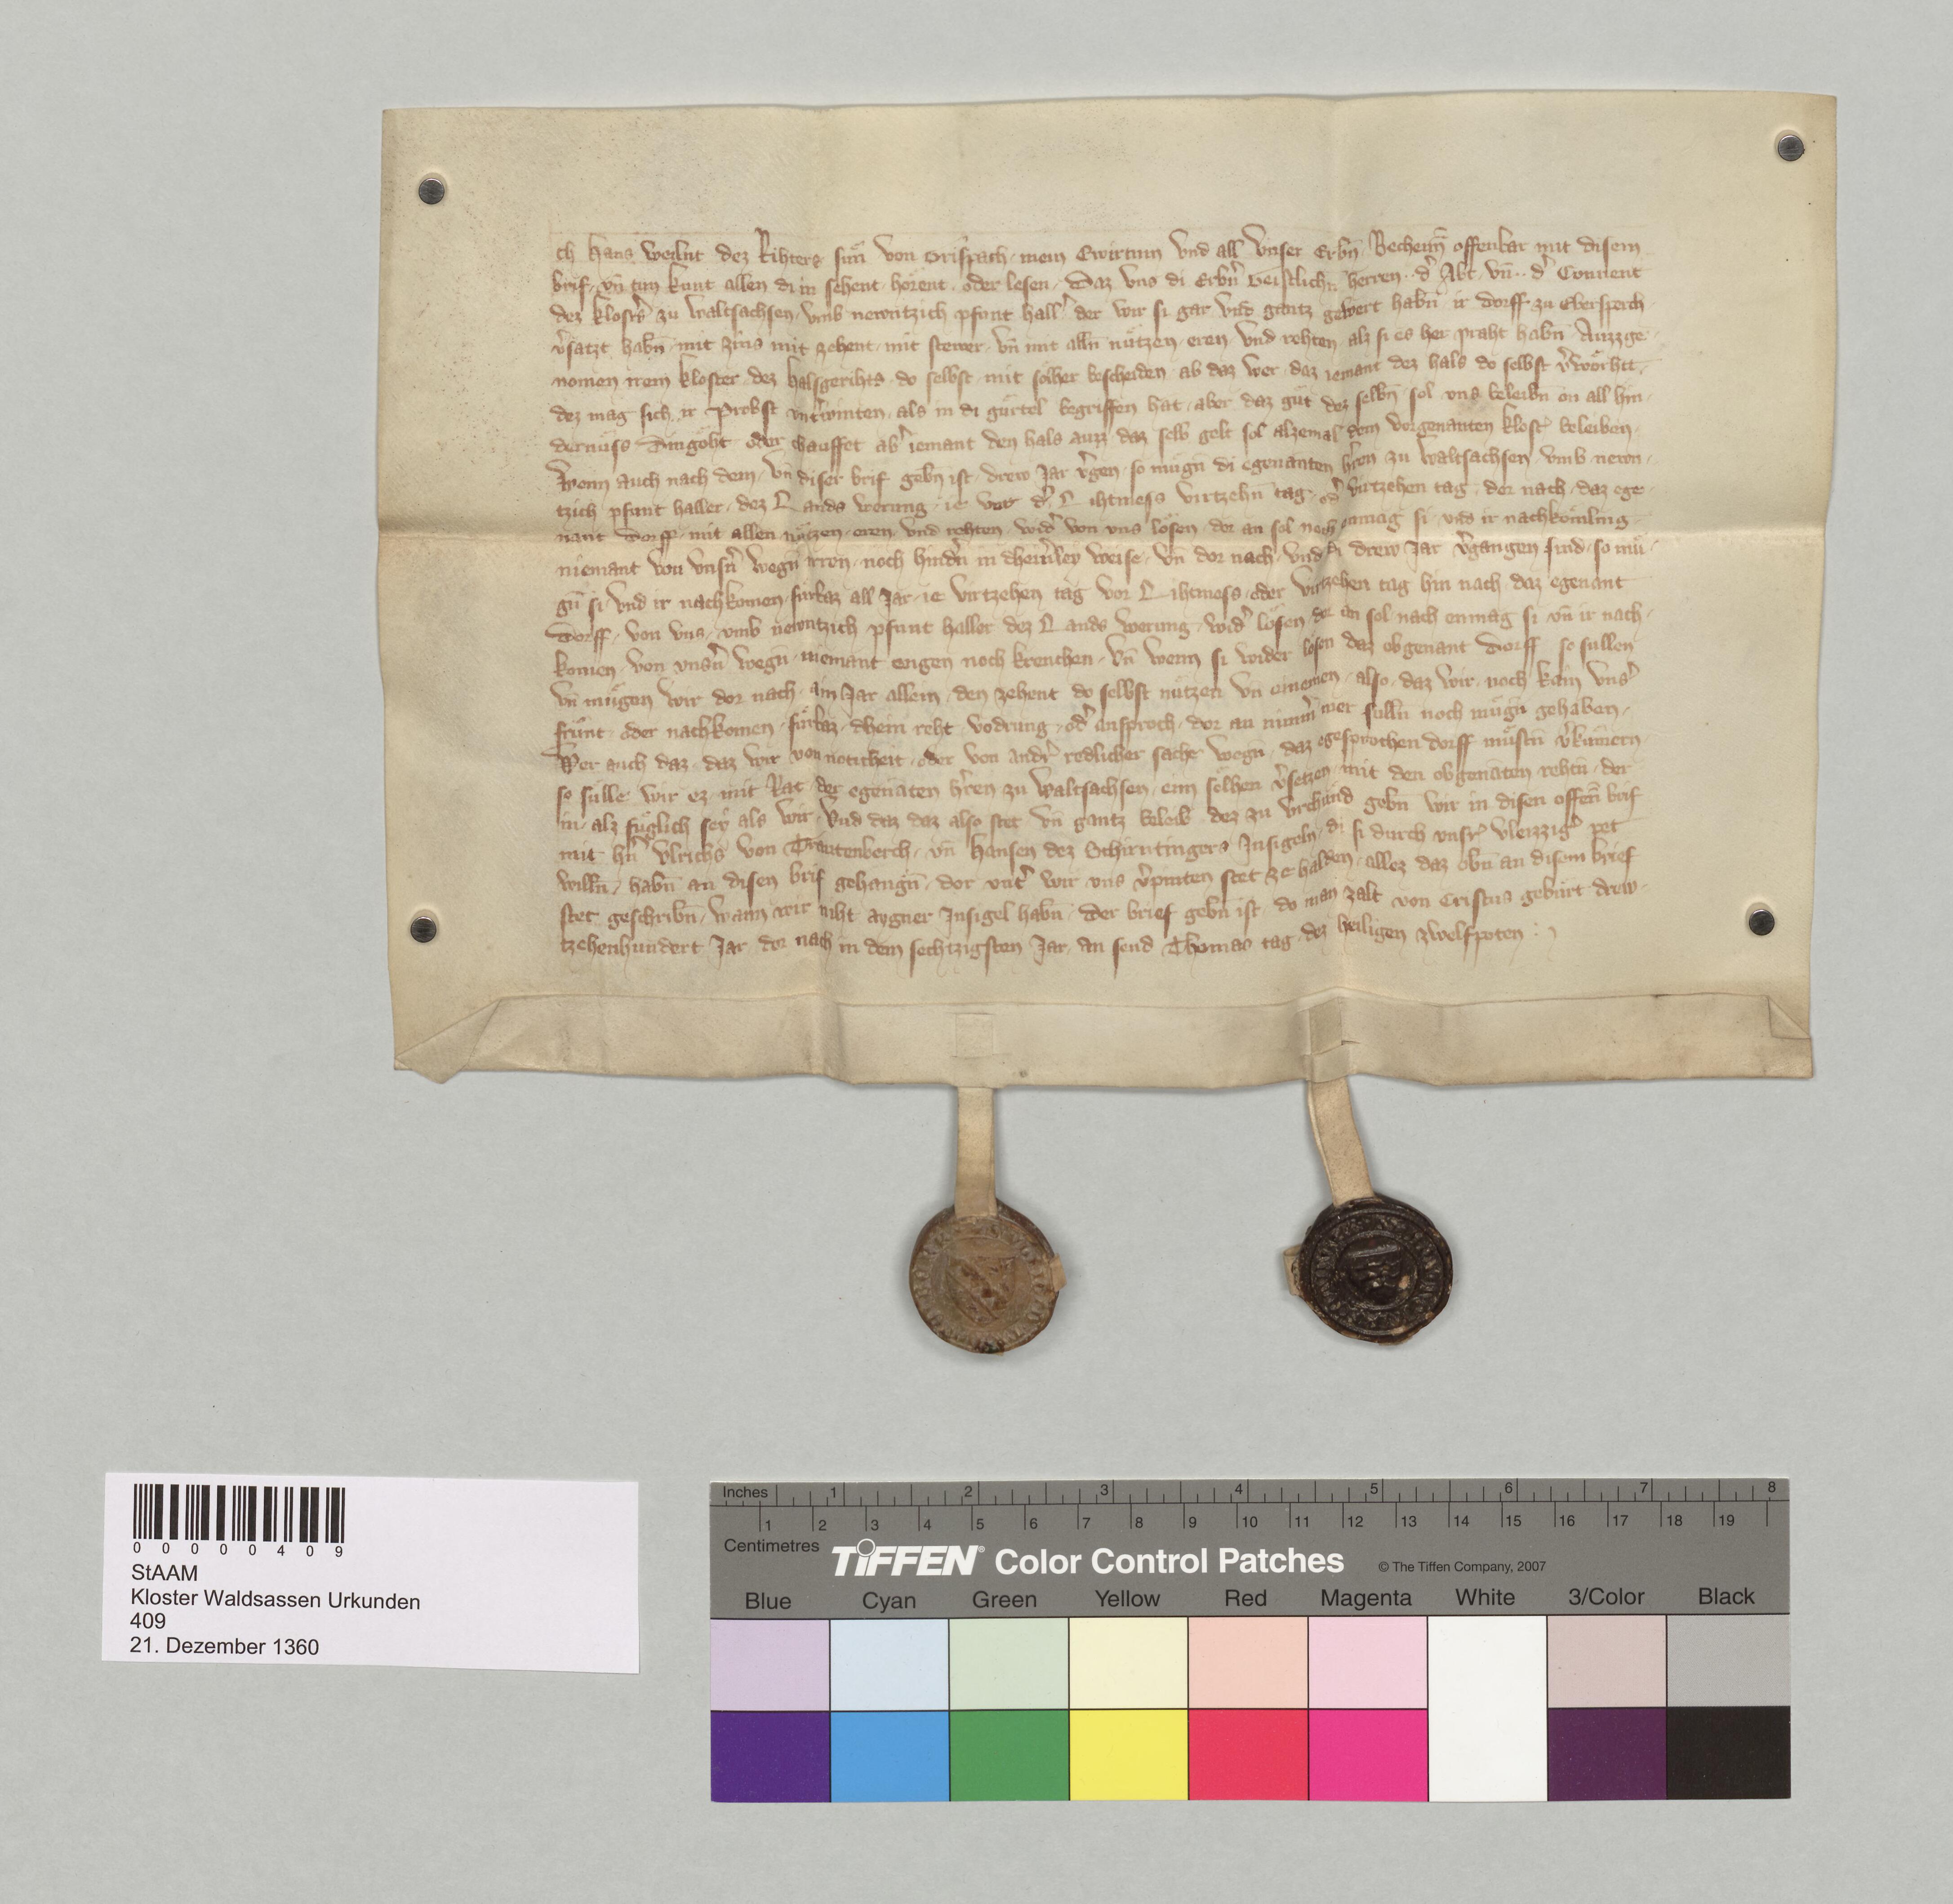 ch Hans weilnt dez Rihters sun von Grispach mein Ewirtinn vnd all vnser Erbn̄ Bechenn̄ offenbar mit disem
brif vn̄ tun kunt allen di in sehent horent oder lesen Daz vns di Erbn̄ Geistlichn̄ herren d' Abt vn̄ d' Conuent
dez klost's zu Waltsachsen vmb newntzich pfunt hall' der wir si gar vnd gantz gewert habn̄ ir dorff zu Ebersperch
v'satzt habn̄ mit zins mit zehent mit stewer vn̄ mit alln̄ nützen eren vnd rehten alz si es her praht habn̄ Auzzge
nomen irem kloster dez halsgerihts do selbst mit solher bescheiden ab daz wer daz iemant dez hals do selbst v'wörhtt
dez mag sich ir Probst vnt'winten als in di gürtel begriffen hat aber daz gut dez selbn̄ sol vns beleibn on all hin
dernüss Dingöht oder chauffet ab' iemant den hals auzz daz selb gelt sol alzemal dem vorgenanten klost' beleiben
Wenn auch nach dem vn̄ diser brif gebn̄ ist drew Jar v'gen so mügn̄ di egenanten h'ren zu Waltsachsen vmb newn
tzich pfunt haller dez Lands werung ie vor d' Lihtmess virtzehn̄ tag od' virtzehen tag dor nach daz ege
nant Dorff mit allen nützen eren vnd rehten wid' von vns lösen dor an sol noch enmag si vnd ir nachkömling
niemant von vnsn̄ wegn̄ irren noch hindn̄ in dheinley weise vn̄ dor nach vnd di drew Jar v'gangen sind so mü
gn̄ si vnd ir nachkomen fürbaz all Jar ie virtzehen tag vor Lihtmess oder virtzehen tag hin nach daz egenant
Dorff von vns vmb newntzich pfunt haller dez Lands werung wid' lösen dor an sol nach enmag si vn̄ ir nach
komen von vnsn̄ wegn̄ niemant engen noch krenchen Vn̄ wenn si wider losen daz obgenant Dorff so sullen
vn̄ mügen wir dor nach ain Jar allein den zehent do selbst nützen vn̄ einemen also daz wir noch kain vns'
frünt oder nachkomen fürbaz dhein reht vodrung od' ansproch dor an nimm' mer sulln̄ noch mügn̄ gehaben
Wer auch daz daz wir von notticheit oder von andr' redlicher sache wegn̄ daz egesprochen dorff müstn̄ v'kümern
so sülle wir ez mit Rat der egenāten h'ren zu Waltsachsen eim sölhen v'setzen mit den obgenāten rehtn̄ der
in alz füglich sey als wir Vnd daz daz also stet vn̄ gantz beleib dez zu vrchünd gebn̄ wir in disen offen̄ brif
mit hn̄ Vlrichs von Trautenberch vn̄ Hansen dez Schirntingers Insigeln di si durch vnsr' vleizzig' pet
willn̄ habn̄ an disen brif gehangn̄ dor vnt' wir vns v'pinten stet ze halden allez daz obn̄ an disem brief
stet geschribn̄ wann wir niht aygner Insigel habn̄ Der brief gebn̄ ist do man zalt von Cristus geburt drew
tzehenhundert Jar dor nach in dem sechtzigsten Jar an send Thomas tag dez heiligen zwelfpoten
0 0 0 0 0 4 0 9
StAAM
Kloster Waldsassen Urkunden
409
21. Dezember 1360
Inches 1 2 3 4 5 6 7 8
1 2 3 4 5 6 7 8 9 10 11 12 13 14 15 16 17 18 19
Centimetres
TIFFEN® Color Control Patches © The Tiffen Company, 2007
Blue Cyan Green Yellow Red Magenta White 3/Color Black